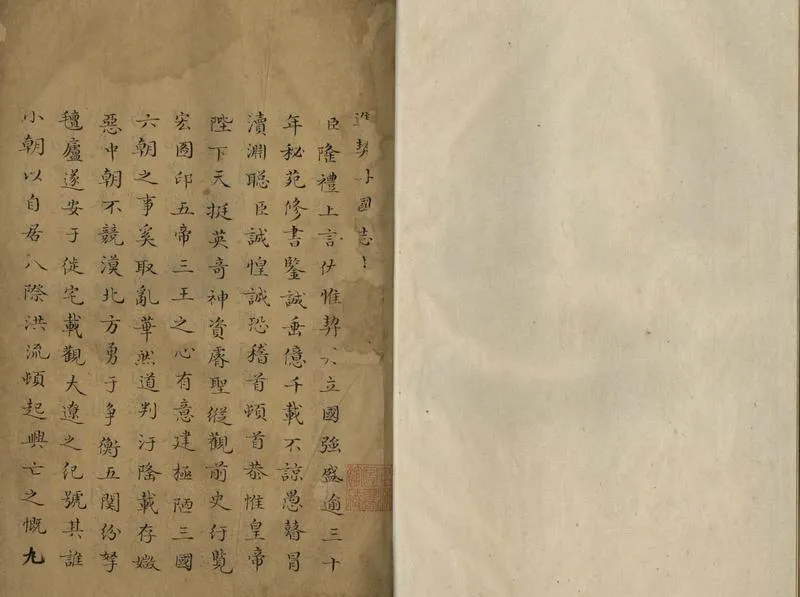 進契丹國志
臣隆禮上言伏惟契丹立國強盛逾三十
年秘苑修書鑒誠垂億千載不諒愚瞽冒
瀆淵聰臣誠惶誠恐稽首頓首恭惟皇帝
陛下天挺英奇神資睿聖縱觀前史行覽
宏圖印五帝三王之心有意建極陋三國
六朝之事奚取亂華然道判汙隆載存媺
惡中朝不競漠北方勇于爭衡五閏紛拏
氊廬遂安于徙宅載觀大遼之紀號其誰
小朝以自居八際洪流頓起興亡之慨九